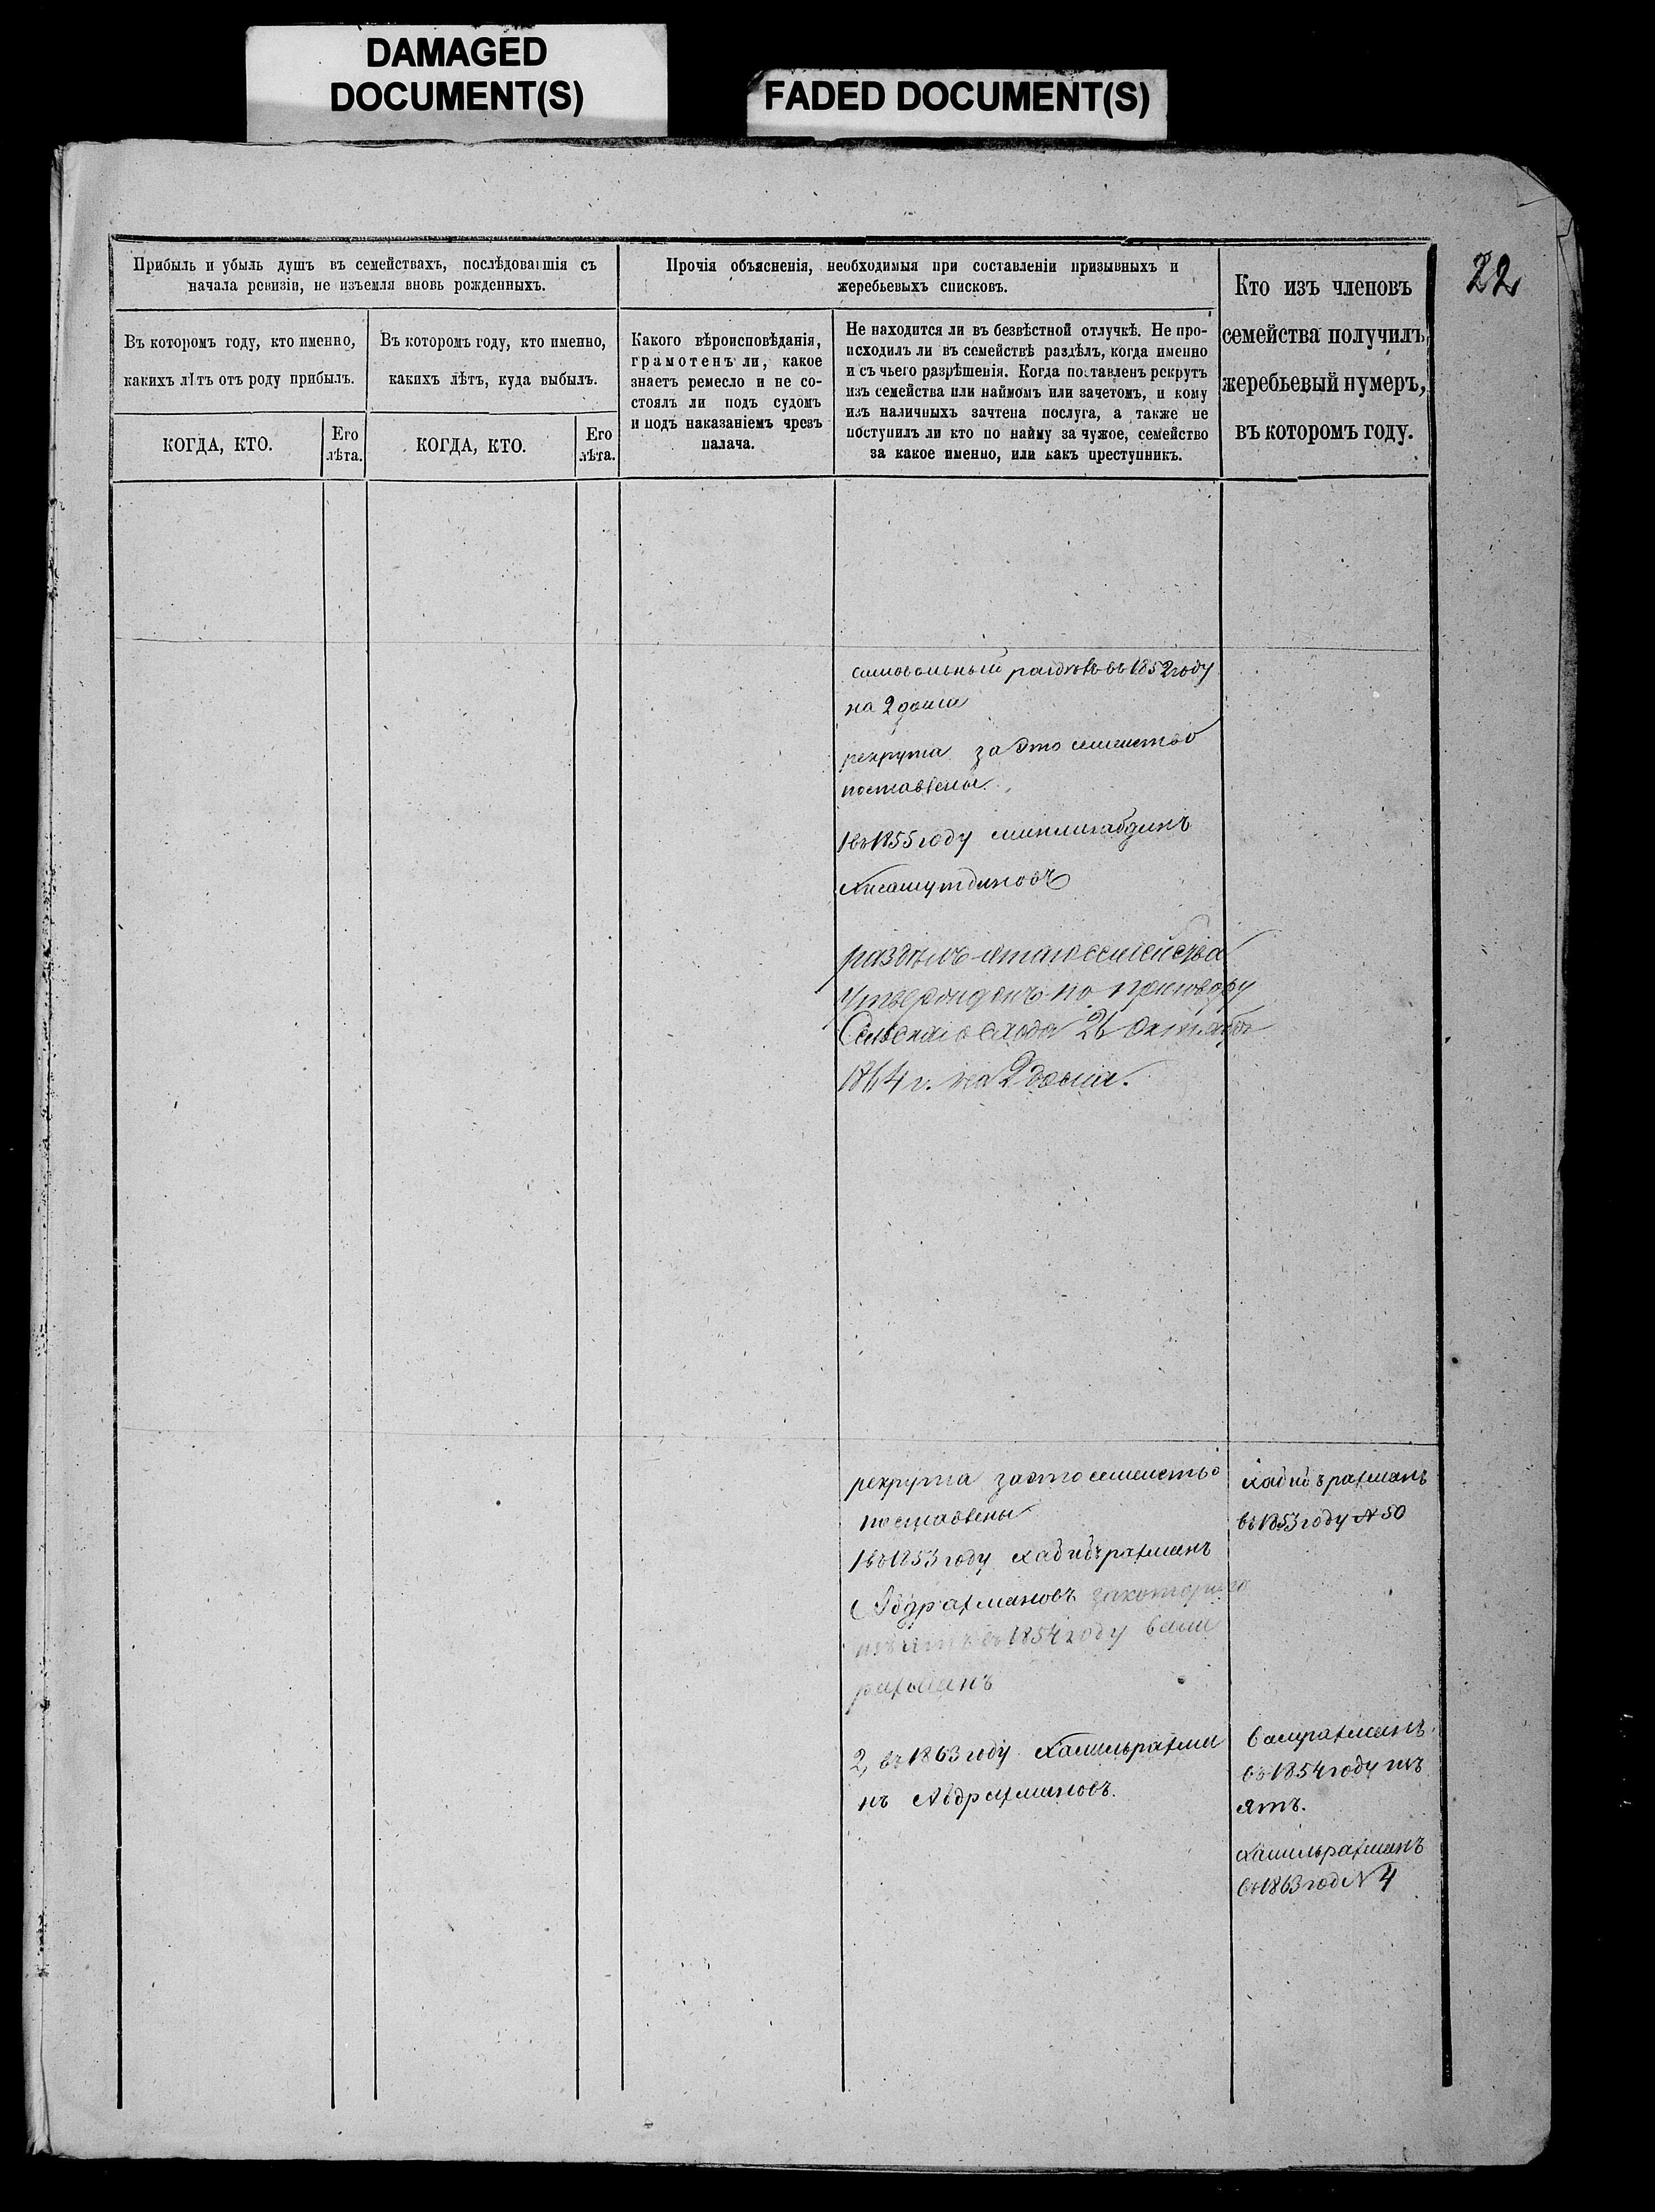 DAMAGED
DOCUMENT(S)
FADED DOCUMENT(S)
22
Прибыль и убыль душъ въ семействахъ, послѣдовавшія съ
начала ревизіи, не изъемля вновь рожденныхъ.
Въ которомъ году, кто именно,
какихъ лѣтъ отъ роду прибылъ.
КОГДА, КТО.
Его
лѣта.
Въ которомъ году, кто именно,
какихъ лѣтъ, куда выбылъ.
КОГДА, КТО.
Его
лѣта.
Прочія объясненія, необходимыя при составленіи призывныхъ и
жеребьевыхъ списковъ.
Какого вѣроисповѣданія,
грамотенъ ли, какое
знаетъ ремесло и не со-
стоялъ ли подъ судомъ
и подъ наказаніемъ чрезъ
палача.
Не находится ли въ безвѣстной отлучкѣ. Не про-
исходилъ ли въ семействѣ раздѣлъ, когда именно
и съ чьего разрѣшенія. Когда поставленъ рекрутъ
изъ семейства или наймомъ или зачетомъ, и кому
изъ наличныхъ зачтена послуга, а также не
поступилъ ли кто по найму за чужое, семейство
за какое именно, или какъ преступникъ.
Кто изъ членовъ
семейства получилъ
жеребьевый нумеръ,
въ которомъ году.
самовольный раздѣлъ въ 1852 году
на 2 дома
рекрута за это семейство
поставлены
1 въ 1855 году
Хисамутдиновъ
раздѣлъ этаго семейства
Утвержденъ по приговору
Сельскаго схода 26 Октября
1864 г. на 2 дома.
рекрута за это семейство
поставлены
1 въ 1853 году Хабибрахманъ
Абдрахмановъ за котораго
изъятъ въ 1854 году вали
рахманъ
2, въ 1863 году Хамильрахма
нъ Абдрахмановъ.
Хабибрахманъ
въ 1853 году № 50
валирахманъ
въ 1854 году изъ
ятъ.
Хамильрахманъ
въ 1863 год № 4